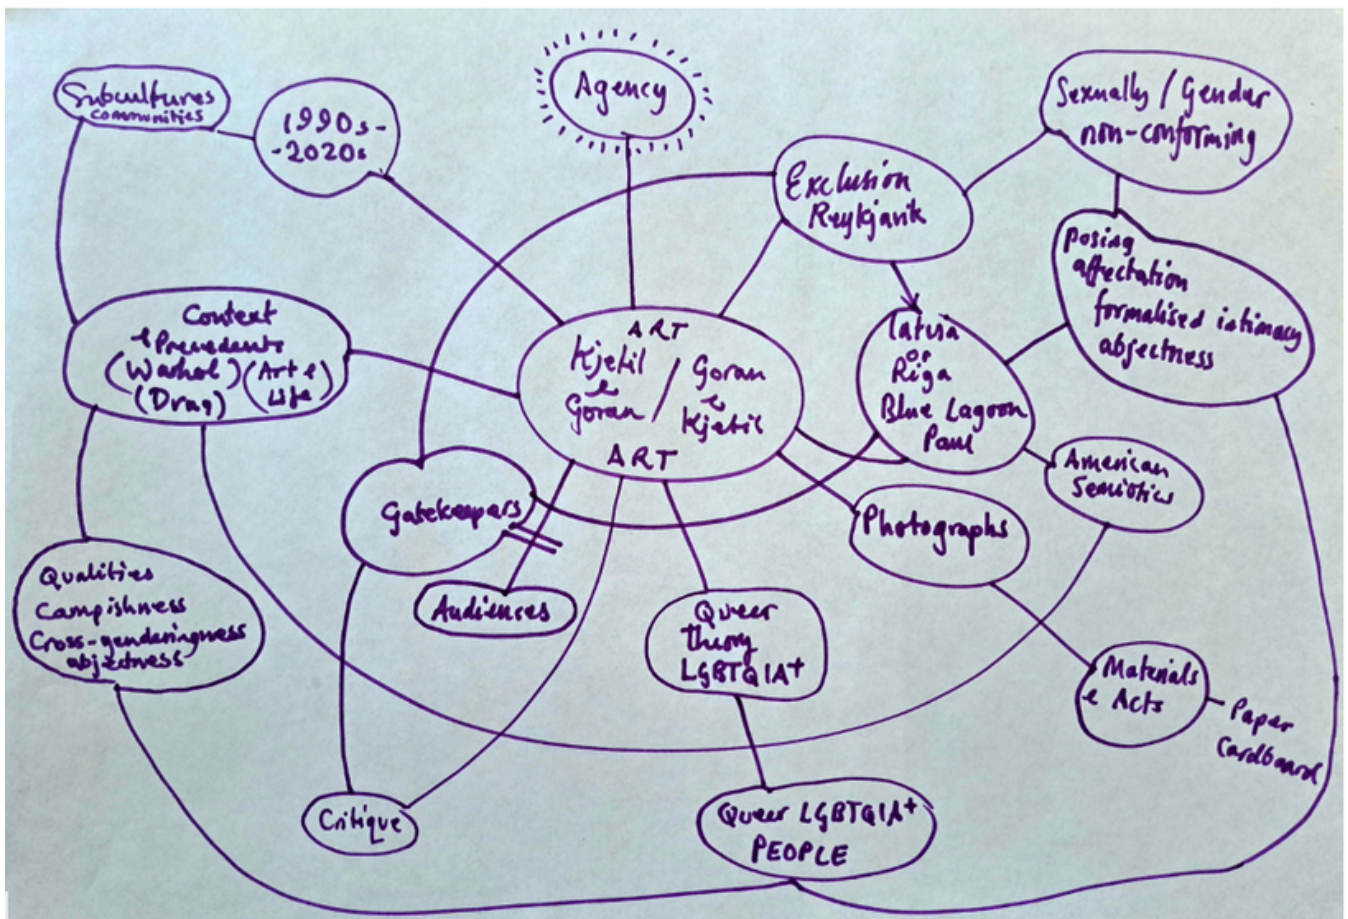 Subcultures
communities
1990s-
-2020s
Agency
Sexually / Gender
non-conforming
Exclusion
Reykjavik
posing
affectation
formalised intimacy
abjectness
Context
& Precedents
(Warhol) (Art &
(Drag) Life)
ART
Kjetil / Goran
& &
Goran Kjetil
ART
Latvia
or
Riga
Blue Lagoon
Paul
American
Semiotics
Gatekeepers
Photographs
Qualities
Campishness
Cross-genderingness
abjectness
Audiences
Queer
theory
LGBTQIA+
Materials
& Acts
Paper
Cardboard
Critique
Queer LGBTQIA+
PEOPLE